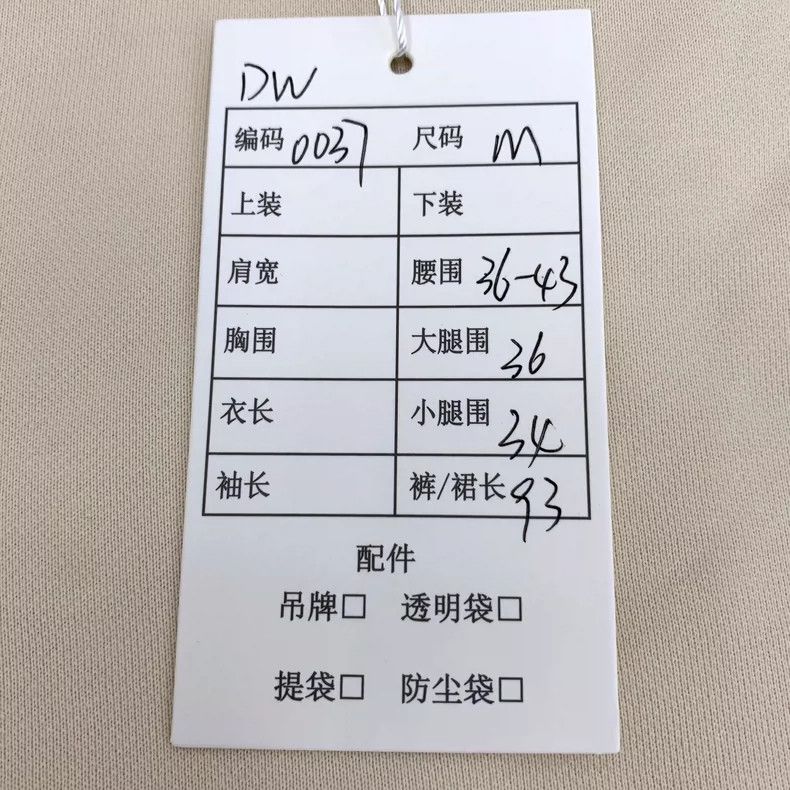 DW
编码 0037 尺码 M
上装 下装
肩宽 腰围 36-43
胸围 大腿围 36
衣长 小腿围 34
袖长 裤/裙长 93
配件
吊牌□ 透明袋□
提袋□ 防尘袋□